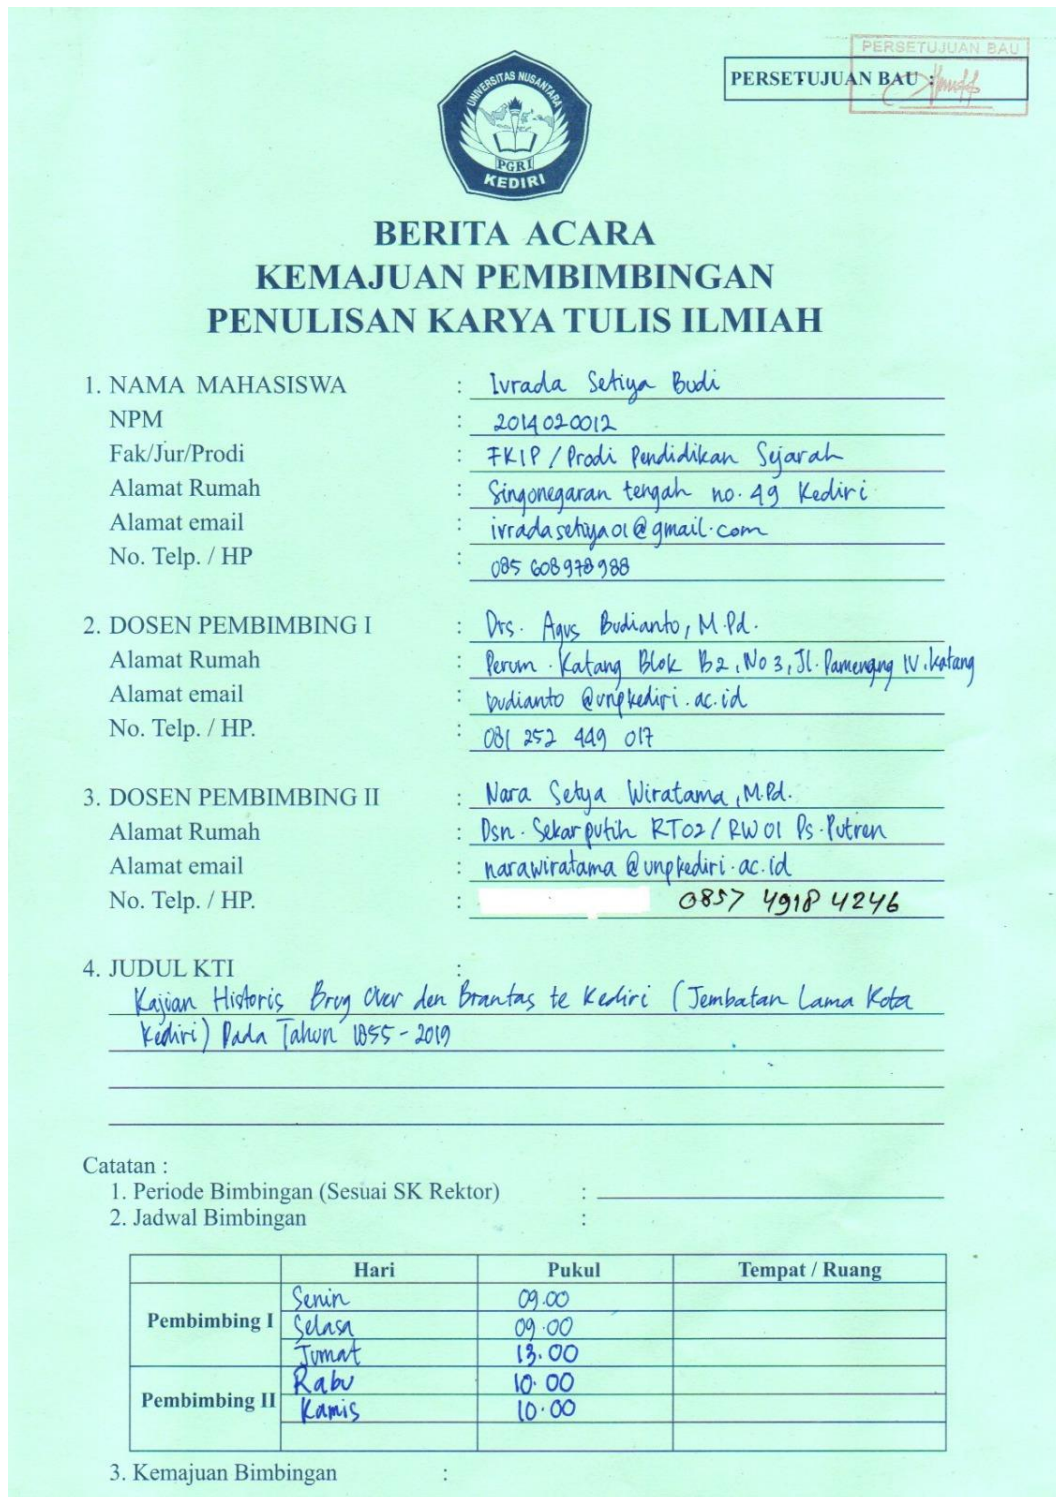 PERSETUJUAN BAU
PERSETUJUAN BAU :
UNIVERSITAS NUSANTARA
PGRI
KEDIRI
BERITA ACARA
KEMAJUAN PEMBIMBINGAN
PENULISAN KARYA TULIS ILMIAH
1. NAMA MAHASISWA : Ivrada Setiya Budi
NPM : 2014020012
Fak/Jur/Prodi : FKIP / Prodi Pendidikan Sejarah
Alamat Rumah : Singonegaran tengah no. 49 Kediri
Alamat email : ivradasetiya01@gmail.com
No. Telp. / HP : 085 608 978 988
2. DOSEN PEMBIMBING I : Drs. Agus Budianto, M.Pd.
Alamat Rumah : Perum. Katang Blok B2, No 3, Jl. Pamenang IV. Katang
Alamat email : budianto @unpkediri.ac.id
No. Telp. / HP. : 081 252 449 017
3. DOSEN PEMBIMBING II : Nara Setya Wiratama, M.Pd.
Alamat Rumah : Dsn. Sekarputih RT02 / RW01 Ps. Putren
Alamat email : narawiratama @unpkediri.ac.id
No. Telp. / HP. : 0857 4918 4246
4. JUDUL KTI :
Kajian Historis Brug Over den Brantas te Kediri (Jembatan Lama Kota
Kediri) Pada Tahun 1855 - 2019
Catatan :
1. Periode Bimbingan (Sesuai SK Rektor) :
2. Jadwal Bimbingan :
Hari Pukul Tempat / Ruang
Pembimbing I
Senin 09.00
Selasa 09.00
Jumat 13.00
Pembimbing II
Rabu 10.00
Kamis 10.00
3. Kemajuan Bimbingan :